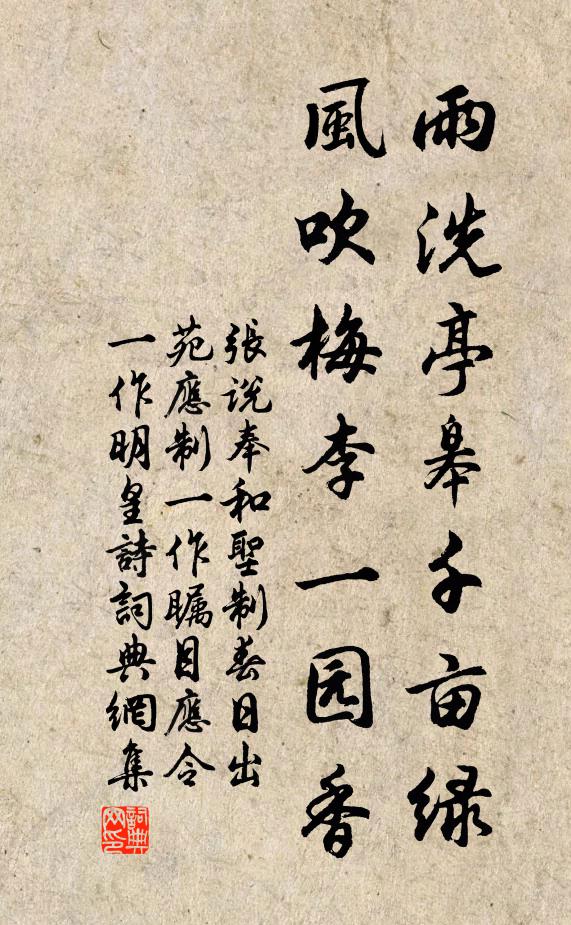 雨洗亭皋千亩绿
風吹梅李一园香
張说奉和聖制春日出
苑應制一作瞩目應令
一作明皇詩詞典網集
詞典
网印